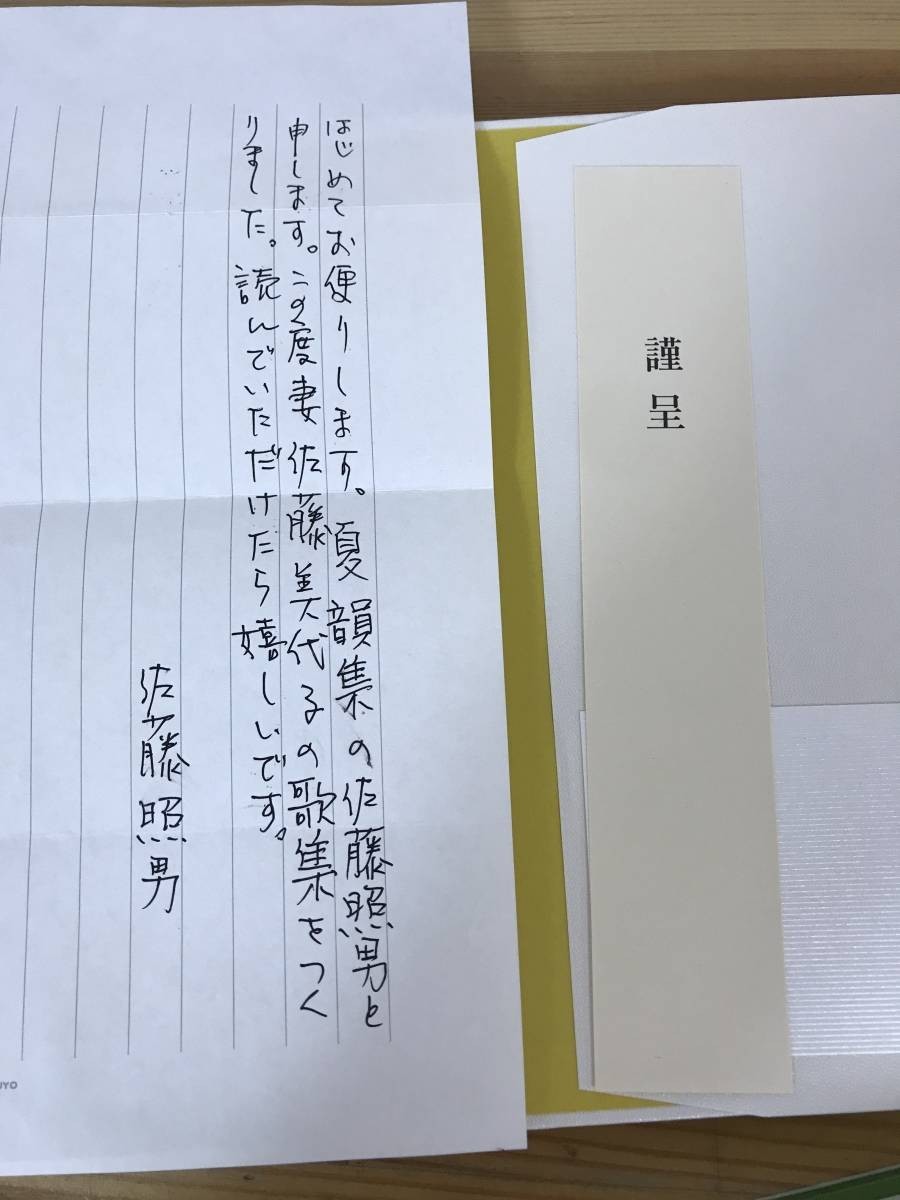 謹呈
はじめてお便りします。夏韻集の佐藤照男と
申します。この度妻佐藤美代子の歌集をつく
りました。読んでいただけたら嬉しいです。
佐藤照男
UYO